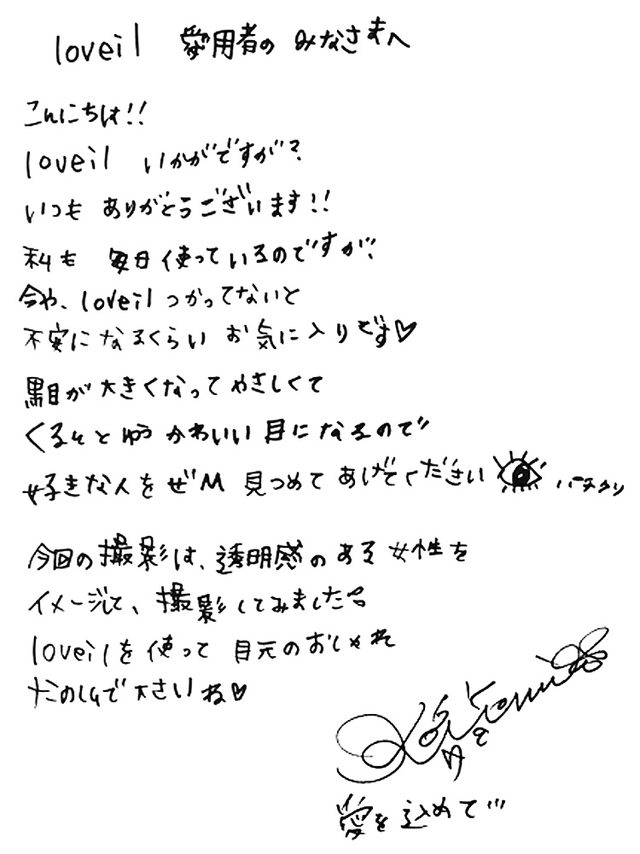 loveil 愛用者の みなさまへ
こんにちは!!
loveil いかがですが?
いつも ありがとうございます!!
私も 毎日使っているのですが、
今や、loveilつかってないと
不安になるくらい お気に入りです♡
黒目が大きくなって やさしくて
くるんとゆう かわいい 目になるので
好きな人を ぜひ 見つめて あげてください パチクリ
今回の撮影は、透明感のある女性を
イメージして、撮影してみました。
loveilを使って 目元のおしゃれ
たのしんで下さいね♡
愛を込めて...